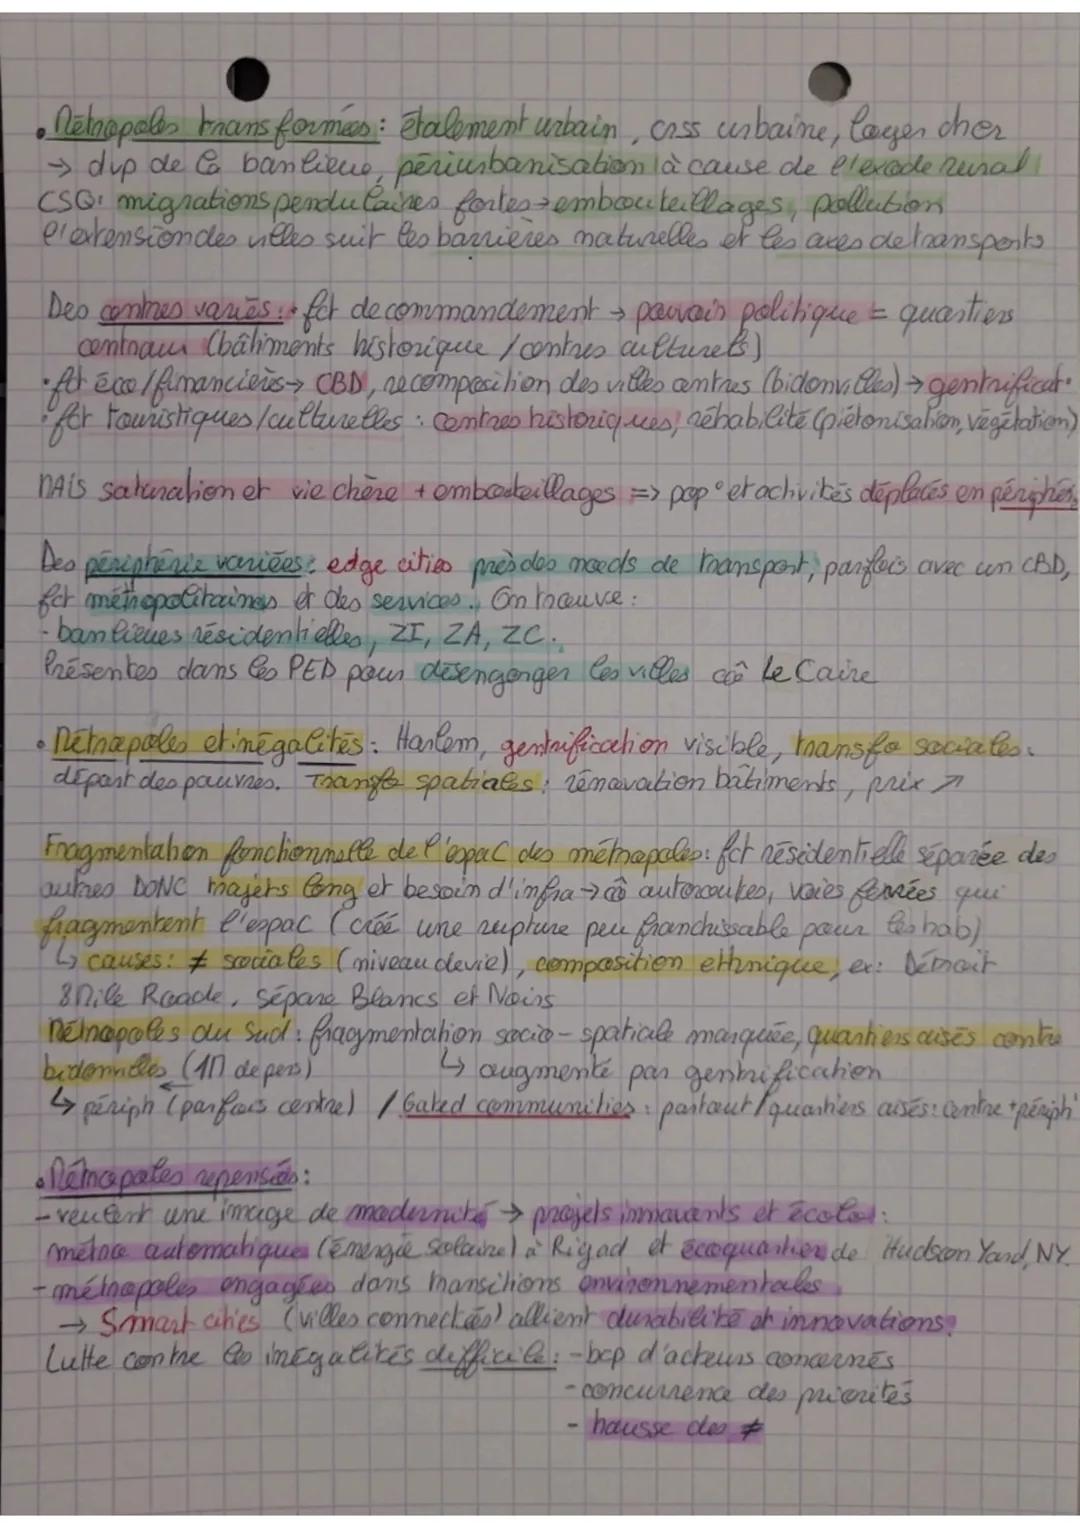 • Métropoles transformées : étalement urbain, criss urbaine, loyer cher
→ dvp de la banlieue, périurbanisation à cause de l'exode rural
CSQ: migrations pendulaires fortes → embouteillages, pollution
l'extension des villes suit les barrières naturelles et les axes de transports
Des centres variés : • fct de commandement → pouvoir politique = quartiers
centraux (bâtiments historique / centres culturels)
• fct éco/financières → CBD, recomposition des villes centres (bidonvilles) → gentrificat°
• fct touristiques/culturelles : centres historiques, réhabilité (piétonisation, végétation)
MAIS saturation et vie chère + embouteillages => pop° et activités déplacés en périphés.
Des périphérie variées : edge cities près des nœds de transport, parfois avec un CBD,
fct métropolitaines et des services. On trouve :
- banlieues résidentielles, ZI, ZA, ZC.
Présentes dans les PED pour désengorger les villes cô Le Caire
• Métropoles et inégalités : Harlem, gentrification visible, transfo sociales :
départ des pauvres. Transfo spatiales : rénovation bâtiments, prix ↗
Fragmentation fonctionnelle de l'espac des métropoles : fct résidentielle séparée des
autres DONC trajets long et besoin d'infra → cô autoroutes, voies ferrées qui
fragmentent l'espac (créé une rupture peu franchissable pour les hab)
↳ causes : ≠ sociales (niveau de vie), composition ethnique, ex : Détroit
8 Mile Roade, sépare Blancs et Noirs
Métropoles du Sud : fragmentation socio-spatiale marquée, quartiers aisés contre
bidonvilles (1M de pers) ↳ augmenté par gentrification
↳ périph (parfois centre) / Gated communities : partout / quartiers aisés : centre + périph
• Métropoles repensées :
- veulent une image de modernité → projets innovants et écolos :
métro automatique (énergie solaire) à Riyad et écoquartier de Hudson Yard, NY.
- métropoles engagées dans transitions environnementales
→ Smart cities (villes connectées) allient durabilité et innovations.
Lutte contre les inégalités difficile : - bcp d'acteurs concernés
- concurrence des priorités
- hausse des ≠